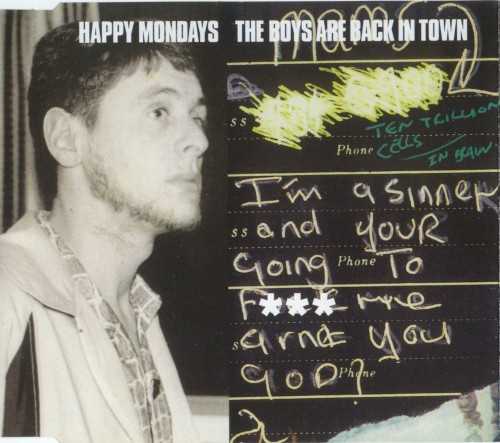 HAPPY MONDAYS THE BOYS ARE BACK IN TOWN
mams
ss
TEN TRILLION
Phone CELLS
IN BRAIN
I'm a sinner
ss and YOUR
going Phone TO
F*** me
s arnt you
GOD? Phone